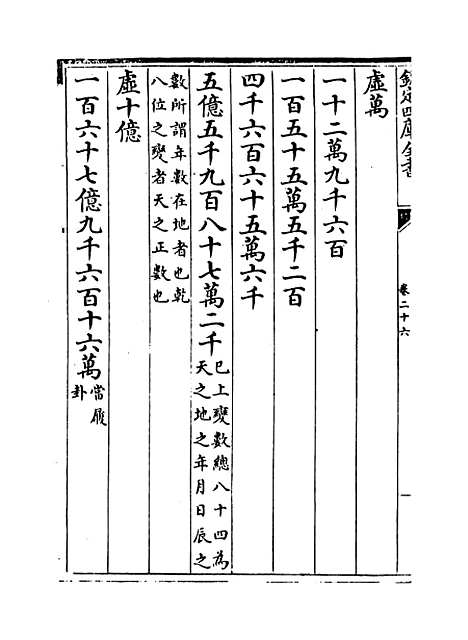 欽定四庫全書
卷二十六
一
虛萬
一十二萬九千六百
一百五十五萬五千二百
四千六百六十五萬六千
五億五千九百八十七萬二千已上變數總八十四為
天之地之年月日辰之
數所謂年數在地者也乾
八位之變者天之正數也
虛十億
一百六十七億九千六百十六萬當履
卦